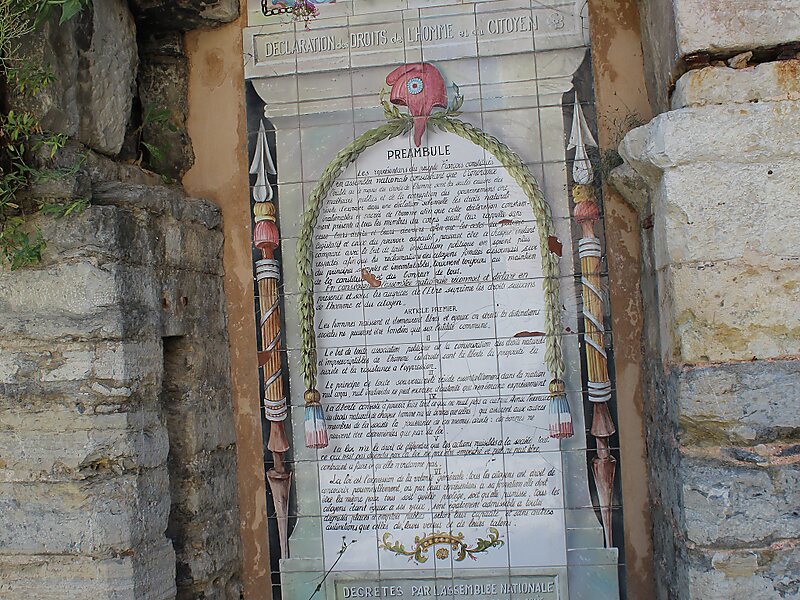 DECLARATION des DROITS de L'HOMME et du CITOYEN
PREAMBULE
Les représentans du peuple François constitués
en assemblée nationale considérant que l'ignorance
l'oubli ou le mépris des droits de l'homme sont les seules causes des
malheurs publics et de la corruption des gouvernemens ont
résolu d'exposer dans une déclaration solemnelle les droits naturels
inaliénables et sacrés de l'homme afin que cette déclaration constam-
ment présente à tous les membres du corps social, leur rappelle sans
cesse leurs droits et leurs devoirs afin que les actes du pouvoir
législatif et ceux du pouvoir exécutif, pouvant être à chaque instant
comparés avec le but de toute institution politique en soient plus
respectés afin que les réclamations des citoyens fondées désormais sur
des principes simples et incontestables, tournent toujours au maintien
de la constitution et du bonheur de tous.
En conséquence l'assemblée nationale reconnoit et déclare en
présence et sous les auspices de l'Etre suprême les droits suivans
de l'homme et du citoyen.
ARTICLE PREMIER
Les hommes naissent et demeurent libres et égaux en droits les distinctions
sociales ne peuvent être fondées que sur l'utilité commune.
II
Le but de toute association politique est la conservation des droits naturels
et imprescriptibles de l'homme ces droits sont la liberté la propriété la
sureté et la résistance à l'oppression.
III
Le principe de toute souveraineté réside essentiellement dans la nation
nul corps, nul individu ne peut exercer d'autorité qui n'en émane expressément
IV
La liberté consiste à pouvoir faire tout ce qui ne nuit pas à autrui Ainsi l'exercice
des droits naturels de chaque homme n'a de bornes que celles qui assurent aux autres
membres de la société la jouissance de ces mêmes droits ces bornes ne
peuvent être déterminées que par la loi
V
La loi n'a le droit de défendre que les actions nuisibles à la société tout
ce qui n'est pas défendu par la loi ne peut être empêché et nul ne peut être
contraint à faire ce qu'elle n'ordonne pas.
VI
La loi est l'expression de la volonté générale tous les citoyens ont droit de
concourir personnellement, ou par leurs représentans à sa formation elle doit
être la même pour tous soit qu'elle protège, soit qu'elle punisse, Tous les
citoyens étant égaux à ses yeux, sont également admissibles à toutes
dignités places et emplois publics selon leur capacité et sans autres
distinctions que celles de leurs vertus et de leurs talens.
DECRETES PAR L'ASSEMBLEE NATIONALE